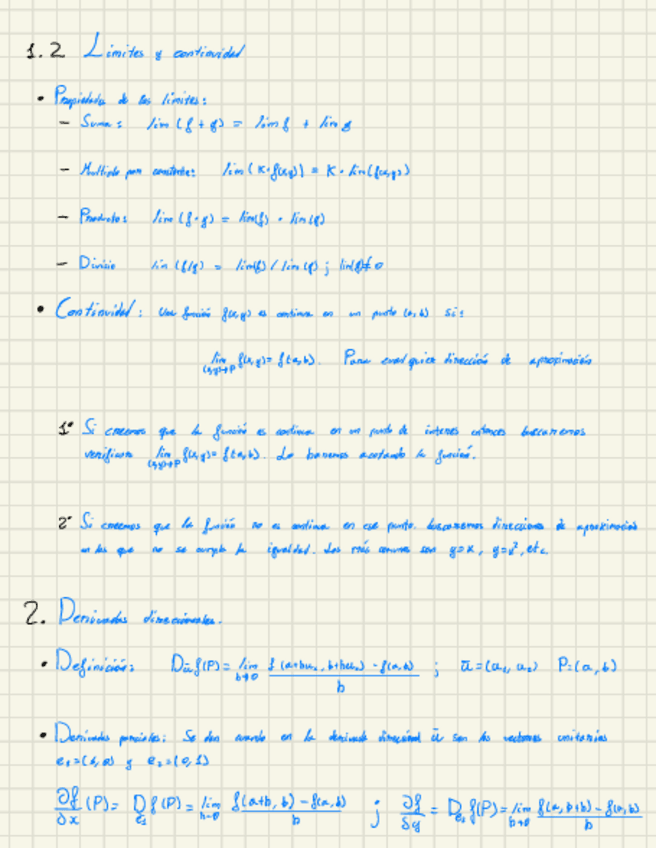 1.2 Límites y continuidad
• Propiedades de los límites:
– Suma: lim (f + g) = lim f + lim g
– Multiplo por constante: lim (K·f(x,y)) = K · lim (f(x,y))
– Producto: lim (f·g) = lim(f) · lim(g)
– Divisio lim (f/g) = lim(f) / lim (g) ; lim(g)≠0
• Continuidad: Una función f(x,y) es continua en un punto (a,b) si:
lim (x,y)→P f(x,y) = f(a,b). Para cualquier dirección de aproximación
1º Si creemos que la función es continua en un punto de interes entonces buscaremos
verificar lim (x,y)→P f(x,y) = f(a,b). Lo haremos acotando la función.
2º Si creemos que la función no es continua en ese punto. buscaremos direcciones de aproximación
en las que no se cumpla la igualdad. Las más comunes son y=x, y=x², etc.
2. Derivadas direccionales.
• Definición: Dūf(P) = lim h→0 f(a+hu₁, b+hu₂) - f(a,b) / h ; ū=(u₁, u₂) P=(a,b)
• Derivadas parciales: Se dan cuando en la derivada direccional ū son los vectores unitarios
e₁=(1,0) y e₂=(0,1)
∂f/∂x (P) = D e₁ f(P) = lim h→0 f(a+h, b) - f(a,b) / h ; ∂f/∂y = D e₂ f(P) = lim h→0 f(a, b+h) - f(a,b) / h